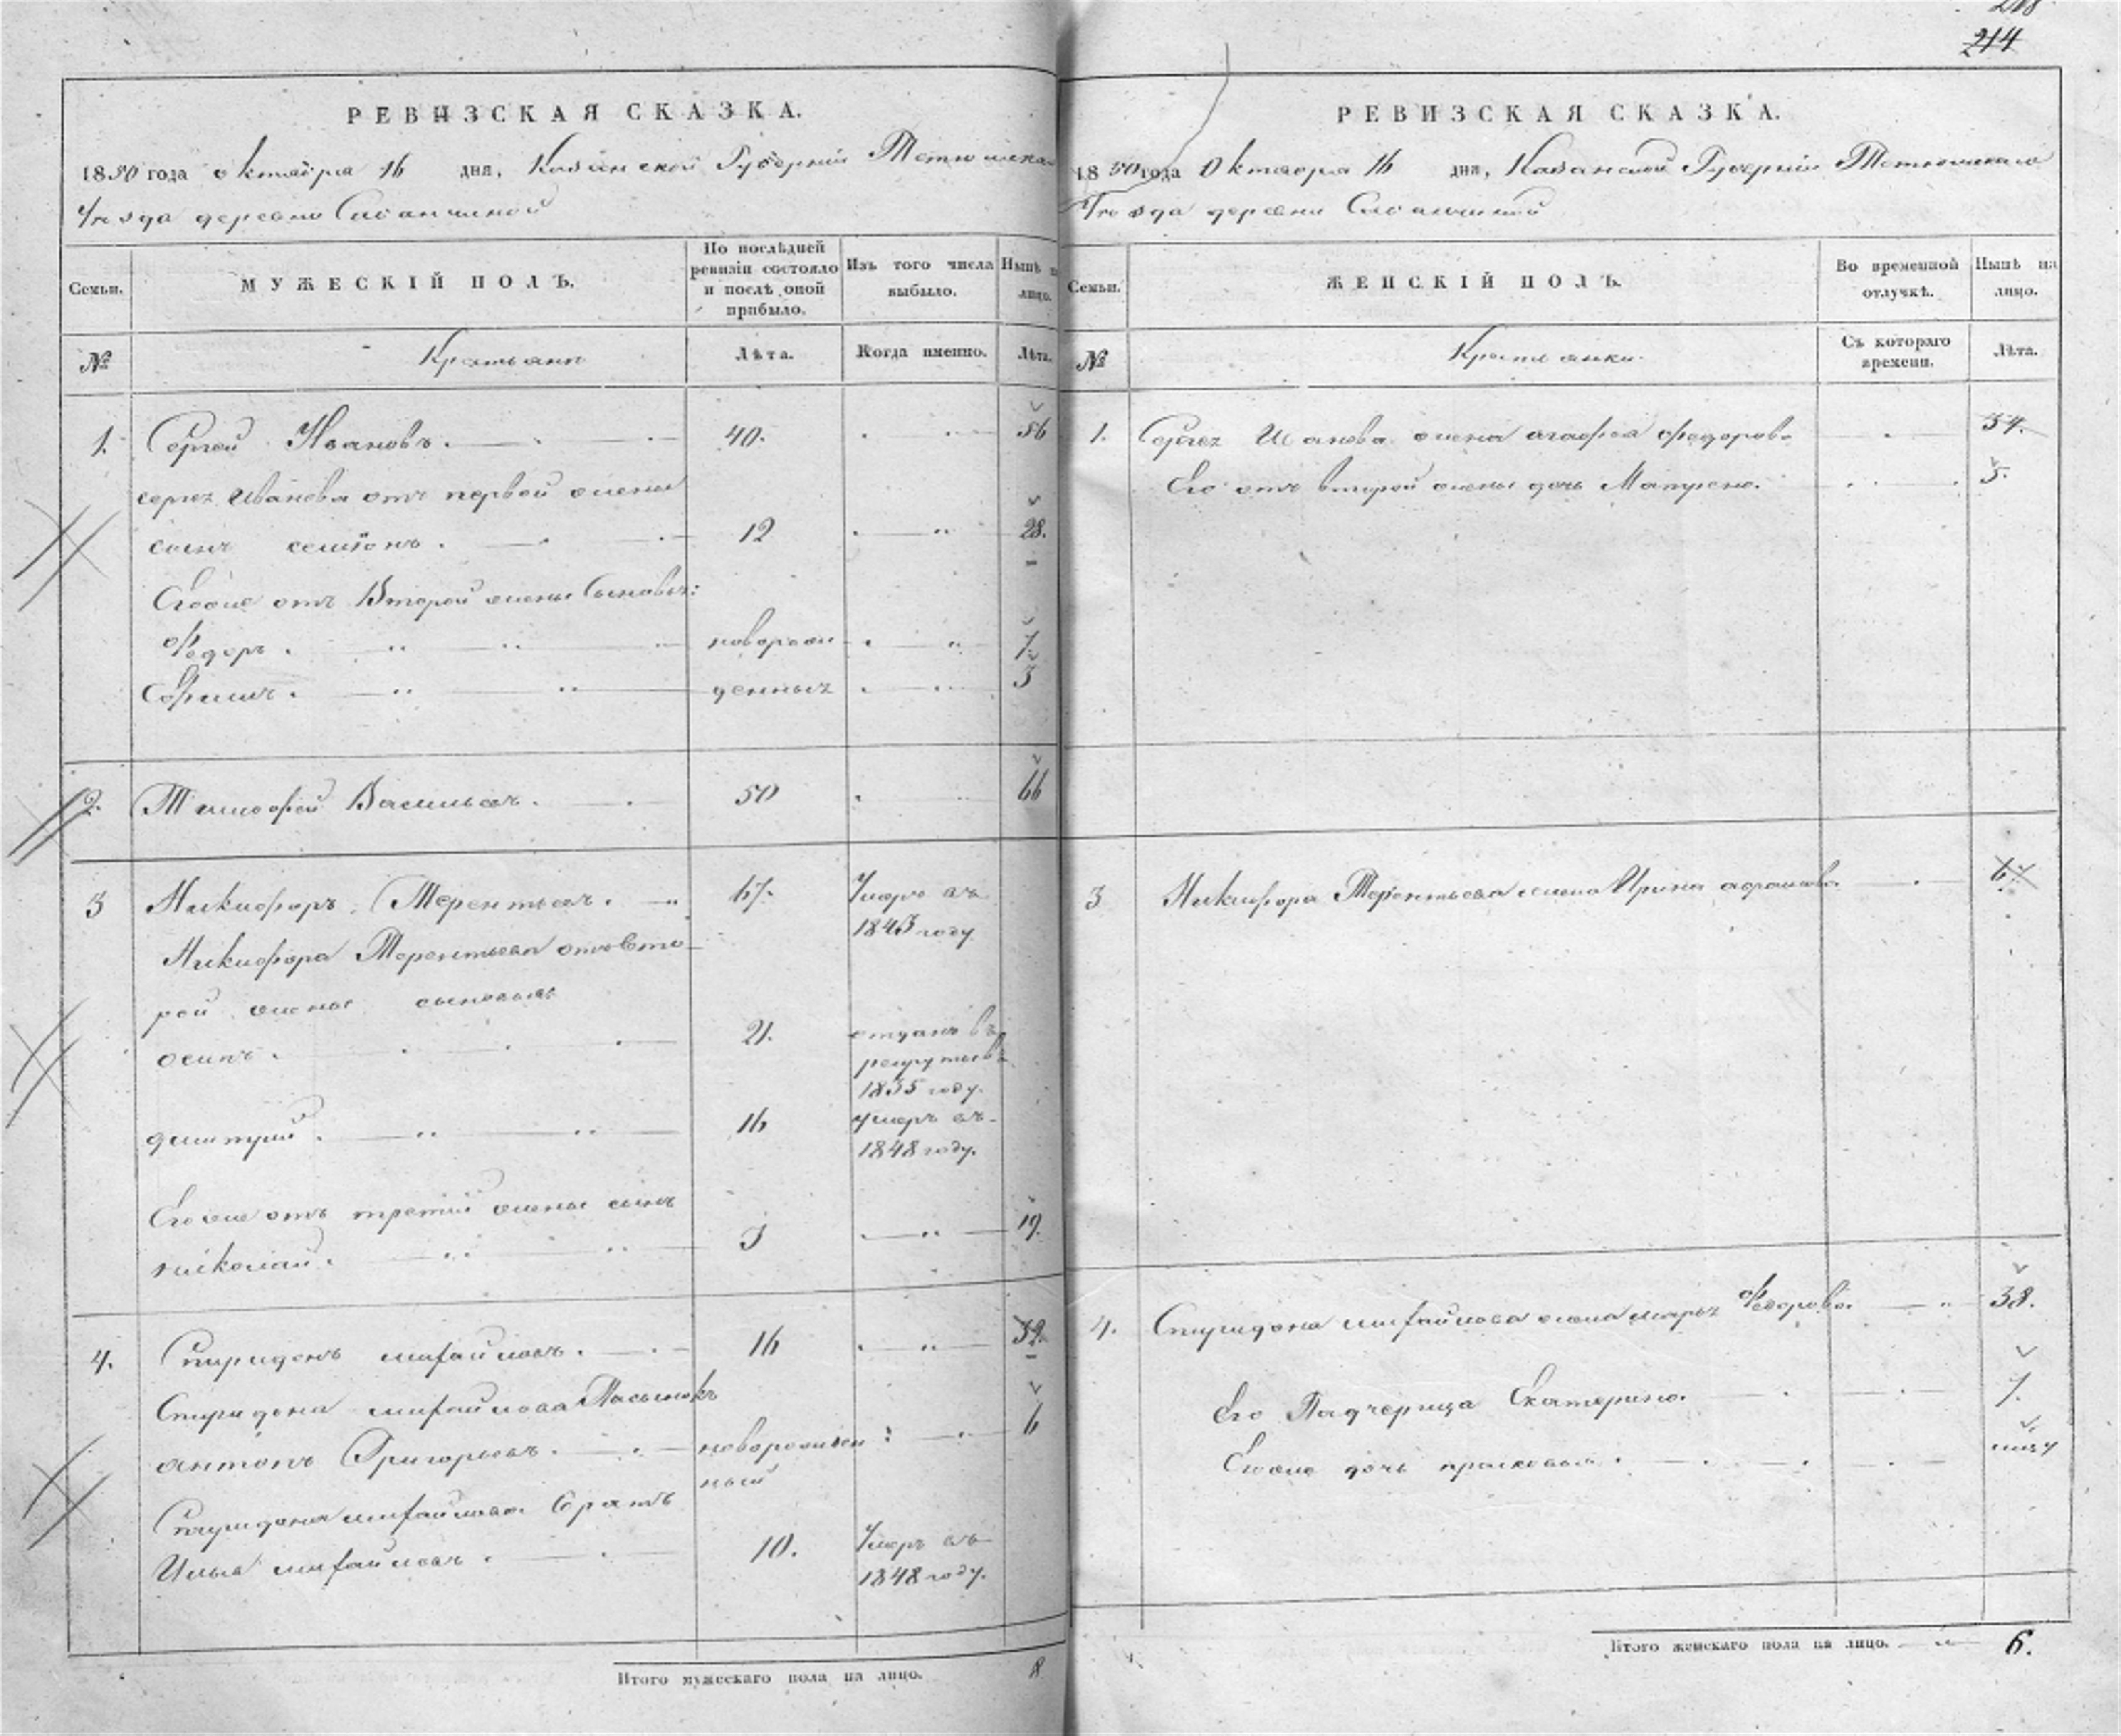 РЕВИЗСКАЯ СКАЗКА.
1850 года октября 16 дня, Казанской Губернии Тетюшскаго
Уѣзда деревни
Семьи.
МУЖЕСКІЙ ПОЛЪ.
По послѣдней ревизіи состояло и послѣ оной прибыло.
Изъ того числа выбыло.
Нынѣ на лицо.
№
Крестьяне
Лѣта.
Когда именно.
Лѣта.
1. Сергей Ивановъ. 40. 56
Сергея Иванова отъ первой жены
сынъ Семіонъ. 12 28.
Егоже отъ Второй жены Сыновья:
Федоръ. новорож 7.
Ефимъ. денныя 3
2. Тимофей Васильевъ. 50 66
3 Никифоръ Терентьевъ. 67. Умеръ въ
1843 году
Никифора Терентьева отъ вто
рой жены сыновья
осипъ. 21. отданъ въ
рекруты въ
1835 году.
дмитрий. 16 умеръ въ
1848 году.
Егоже отъ третий жены сынъ
николай. 3 19.
4. Спиридонъ михайловъ. 16 32.
Спиридона михайлова Пасынокъ
антонъ Григорьевъ. новорожден 6
ный
Спиридона михайлова братъ
Илья михайловъ. 10. Умеръ въ
1848 году.
Итого мужескаго пола на лицо. 8
218
214
РЕВИЗСКАЯ СКАЗКА.
1850 года Октября 16 дня, Казанской Губерніи Тетюшскаго
Уѣзда деревни
Семьи.
ЖЕНСКІЙ ПОЛЪ.
Во временной отлучкѣ.
Нынѣ на лицо.
№
Крестьянки.
Съ котораго времени.
Лѣта.
1. Сергея Иванова жена агафья федорова 34.
Его отъ второй жены дочь Матрена. 5.
3 Никифора Терентьева жена Ирина 64
4. Спиридона михайлова жена марья Федорова. 38.
Его Падчерица Екатерина. 7.
Егоже дочь прасковья.
Итого женскаго пола на лицо. 6.